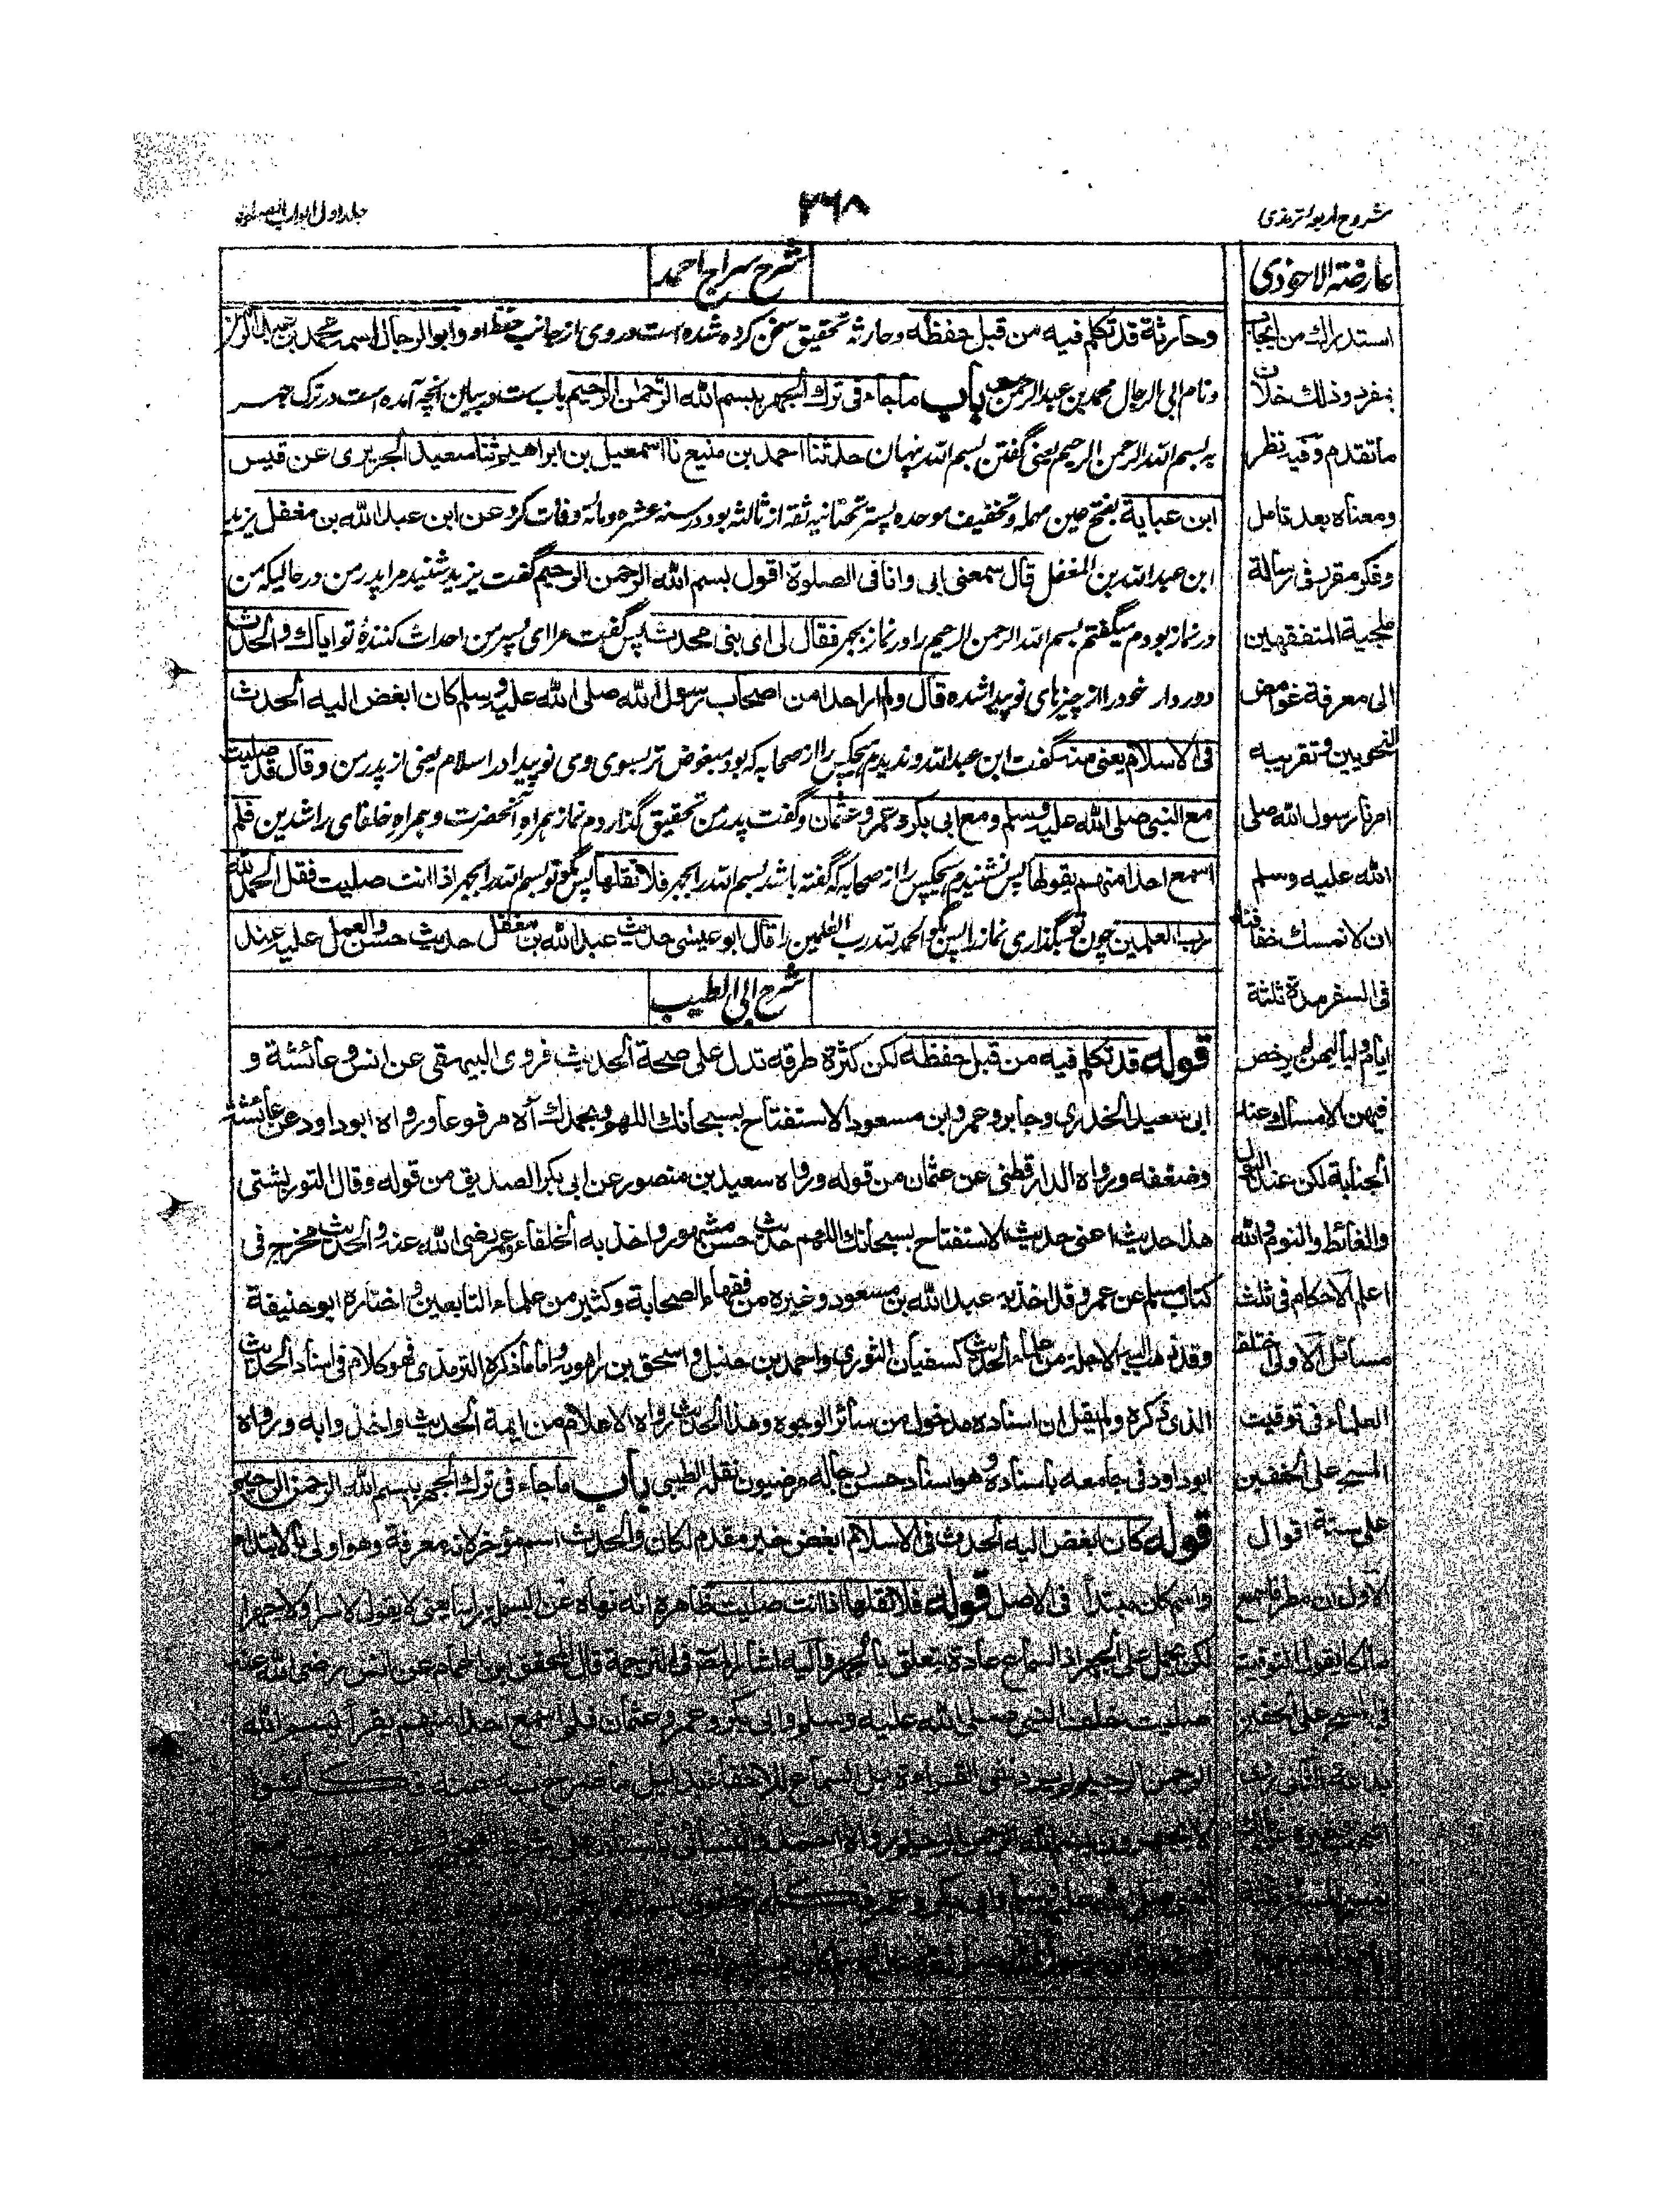 شروح اربعه ترمذی
۲۶۸
جلد اول ابواب الصلوة
عارضة الاحوذی
استدراك من ایجاب
بمفرد وذلك خلاف
ما تقدم وفيه نظر
ومعناه بعد تامل
وفكر مقرر فی رسالة
ملجية المتفقهين
الى معرفة غوامض
النحويين وتقريبه
امرنا رسول الله صلى
الله عليه وسلم
ان لا نمسك خفافنا
فی السفر مدة ثلثة
ايام ولياليهن لم يرخص
فيهن الامساك عنه
الجنابة لكن عند البول
والغائط والنوم والله
اعلم الاحكام فی ثلث
مسائل الاولى اختلف
العلماء فی توقيت
المسح على الخفين
على ستة اقوال
الاول ان مطرفا سمع
مالكا يقول التوقيت
فی المسح على الخفين
شرح سراج احمد
وحارثة قد تكلم فيه من قبل حفظه وحارثه تحقیق سخن كرده شده است در وی از جانب حفظ او وابو الرجال اسمه محمد بن عبد الرحمن
ونام ابی الرجال محمد بن عبد الرحمن باب ما جاء فی ترك الجهر ببسم الله الرحمن الرحيم باب ست در بیان آنچه آمده است در ترک جهر
به بسم الله الرحمن الرحیم یعنی گفتن بسم الله پنهان حدثنا احمد بن منيع نا اسمعيل بن ابراهيم ثنا سعيد الجريری عن قيس
ابن عباية بفتح عین مهمله وتخفیف موحده پستر تحتانیه ثقه از ثالثه بود در سنه عشره ومأته وفات کرد عن ابن عبد الله بن مغفل یزید
ابن عبد الله بن المغفل قال سمعنی ابی وانا فی الصلوة اقول بسم الله الرحمن الرحيم گفت یزید شنید مرا پدر من در حالیکه من
در نماز بودم میگفتم بسم الله الرحمن الرحیم را در نماز بجهر فقال لی ای بنی محدث پس گفت مرا ای پسر من احداث کننده تو اياك والحدث
دور دار خود را از چیزهای نو پیدا شده قال ولم ار احدا من اصحاب رسول الله صلى الله عليه وسلم كان ابغض اليه الحدث
فی الاسلام يعنی منه گفت ابن عبد الله وندیدم هیچکس را از صحابه که بود مبغوض تر بسوی وی نو پیدا در اسلام یعنی از پدر من وقال قد صليت
مع النبی صلى الله عليه وسلم ومع ابی بكر وعمر وعثمان وگفت پدر من تحقیق گذاردم نماز همراه آنحضرت وهمراه خلفای راشدین فلم
اسمع احدا منهم يقولها پس نشنیدم هیچکس را از صحابه که گفته باشد بسم الله را بجهر فلا تقلها پس مگو تو بسم الله را بجهر اذا انت صليت فقل الحمد لله
رب العلمين چون تو بگذاری نماز را پس بگو الحمد لله رب العلمین را قال ابو عيسى حديث عبد الله بن مغفل حديث حسن والعمل عليه عند
شرح ابی الطيب
قوله قد تكلم فيه من قبل حفظه لكن كثرة طرقه تدل على صحة الحديث فروى البيهقی عن انس وعائشة و
ابی سعيد الخدری وجابر وعمر وابن مسعود الاستفتاح بسبحانك اللهم وبحمدك آه مرفوعا ورواه ابو داود عن عائشة
وضعفه ورواه الدارقطنی عن عثمان من قوله ورواه سعيد بن منصور عن ابی بكر الصديق من قوله وقال التوربشتی
هذا حديث اعنی حديث الاستفتاح بسبحانك اللهم حديث حسن مشهور واخذ به الخلفاء وعمر رضی الله عنه والحديث مخرج فی
كتاب مسلم عن عمر وقد اخذ به عبد الله بن مسعود وغيره من فقهاء الصحابة وكثير من علماء التابعين واختاره ابو حنيفة
وقد ذهب اليه الاجلة من علماء الحديث كسفيان الثوری واحمد بن حنبل واسحق بن راهويه واما ما ذكره الترمذی فهو كلام فی اسناد الحديث
الذی ذكره ولم يقل ان اسناده مدخول من سائر الوجوه وهذا الحديث رواه الاعلام من ايمة الحديث واخذوا به ورواه
ابو داود فی جامعه باسناده وهو اسناد حسن رجاله مرضيون نقله الطيبی باب ما جاء فی ترك الجهر ببسم الله الرحمن الرحيم
قوله كان ابغض اليه الحدث فی الاسلام ابغض خبر مقدم لكان والحدث اسم مؤخر لانه معرفة وهو اولى بالابتداء
واسم كان مبتدأ فی الاصل قوله فلا تقلها اذا انت صليت ظاهره انه نهاه عن البسملة راسا يعنی لا يقول لا سرا ولا جهرا
لكن يحمل على الجهر اذ السماع عادة يتعلق بالجهر واليه اشار المص فی الترجمة قال المحقق ابن الهمام عن انس رضی الله عنه
صليت خلف النبی صلى الله عليه وسلم وابی بكر وعمر وعثمان فلم اسمع احدا منهم يقرأ ببسم الله
الرحمن الرحيم لم يرد نفی القراءة بل السماع للاخفاء بدليل ما صرح به عنه فكانوا
لا يجهرون ببسم الله الرحمن الرحيم رواه احمد والنسائی باسناد على شرط الصحيح